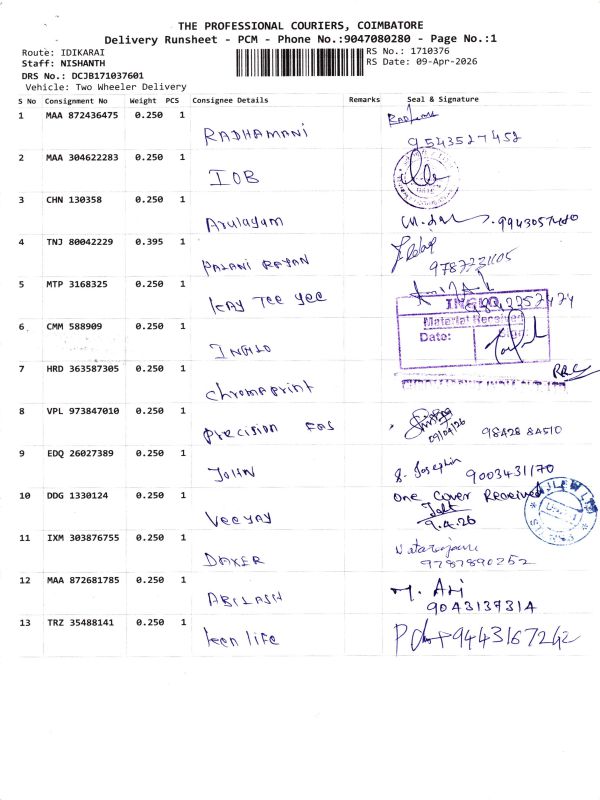 THE PROFESSIONAL COURIERS, COIMBATORE
Delivery Runsheet - PCM - Phone No.:9047080280 - Page No.:1
Route: IDIKARAI
RS No.: 1710376
Staff: NISHANTH
RS Date: 09-Apr-2026
DRS No.: DCJB171037601
Vehicle: Two Wheeler Delivery
S No Consignment No Weight PCS Consignee Details Remarks Seal & Signature
1 MAA 872436475 0.250 1 RADHAMANI
9543527452
2 MAA 304622283 0.250 1 IOB
3 CHN 130358 0.250 1 Arulayam
4 TNJ 80042229 0.395 1 PALANI RAJAN
9787231105
5 MTP 3168325 0.250 1 KAY TEE yee
6 CMM 588909 0.250 1
Material Received
Date:
7 HRD 363587305 0.250 1 chromaprint
8 VPL 973847010 0.250 1 precision
09/04/26 98428 84510
9 EDQ 26027389 0.250 1 JOHN
J. Josephin 9003431170
10 DDG 1330124 0.250 1 VEEJAY
One Cover Received
9.4.26
11 IXM 303876755 0.250 1
9787890252
12 MAA 872681785 0.250 1 ABILASH
9043137314
13 TRZ 35488141 0.250 1 keen life
9443167242